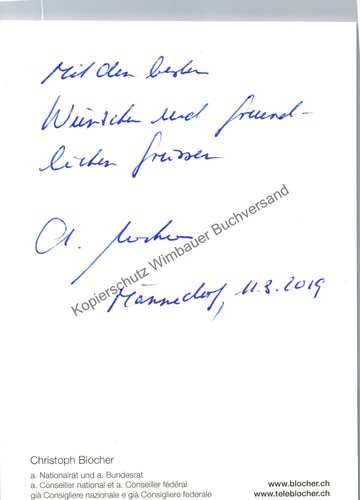 Mit den besten
Wünschen und freund-
lichen Grüssen
Ch. Blocher
Kopierschutz Wimbauer Buchversand
Männedorf, 11.3.2019
Christoph Blocher
a. Nationalrat und a. Bundesrat
a. Conseiller national et a. Conseiller fédéral
già Consigliere nazionale e già Consigliere federale
www.blocher.ch
www.teleblocher.ch